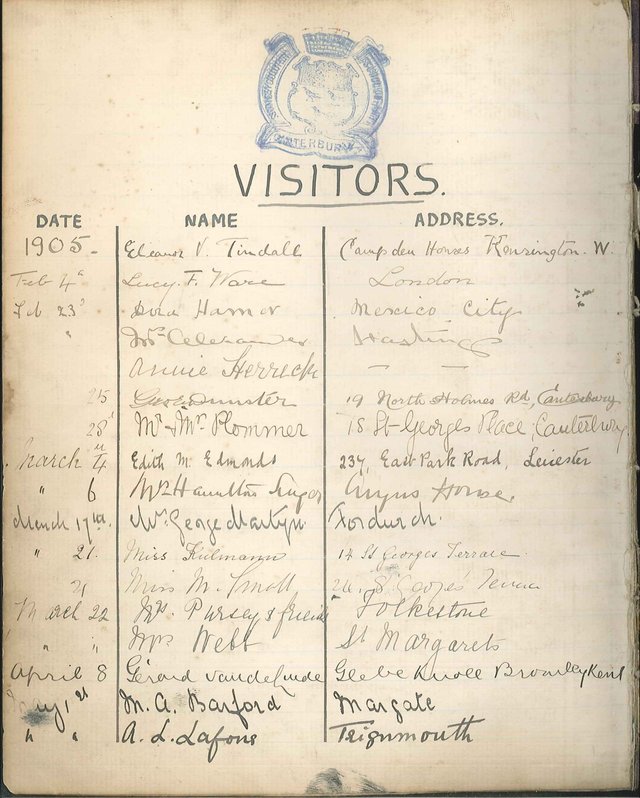 CANTERBURY
VISITORS.
DATE NAME ADDRESS.
1905- Eleanor V. Tindall Campden Houses Kensington. W.
Feb 4" Lucy. F. Ware London
Feb 23" Dora Hamor Mexico City
" Mrs Alexander Hastings
Annie Herrick — —
25 19 North Holmes Rd, Canterbury
28 Mr & Mrs Plommer 18 St Georges Place, Canterbury
March 4 Edith M. Edmonds 237, East Park Road, Leicester
" 6 Mrs Hamilton House.
March 17th. Mrs George Martyn Fordwich.
" 21. Miss Kulmann 14 St Georges Terrace.
21 Miss M. St Georges Terrace
March 22 Mrs. Pursey & friends Folkestone
" " Mrs Webb St Margarets
April 8 Gérard Glebe Knoll Bromley Kent
May 1st M. A. Barford Margate
" " A. L. Lafone Teignmouth